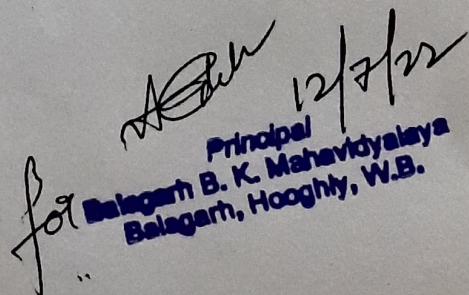 12/7/22
Principal
for Balagarh B. K. Mahavidyalaya
Balagarh, Hooghly, W.B.